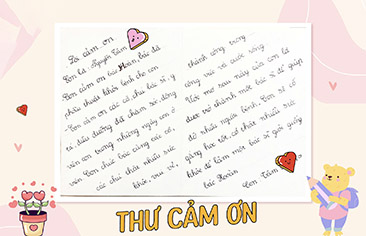 Lời cảm ơn
Con là Nguyễn Tâm
Con cảm ơn bác Hoan, bác đã
phẫu thuật khỏi bệnh cho con
- Con cảm ơn các cô, chú bác sĩ, y
tá, điều dưỡng đã chăm sóc, động
viên con trong những ngày con ở
viện. Con chúc bác cùng các cô,
các chú thật nhiều sức
khỏe, vui vẻ,
thành công trong
công việc và cuộc sống.
Ước mơ sau này của con là
được trở thành một bác sĩ để giúp
đỡ nhiều người bệnh. Con sẽ cố
gắng học tốt, có thật nhiều sức
khỏe để làm một bác sĩ giỏi giống
bác Hoan
Con Tâm
THƯ CẢM ƠN